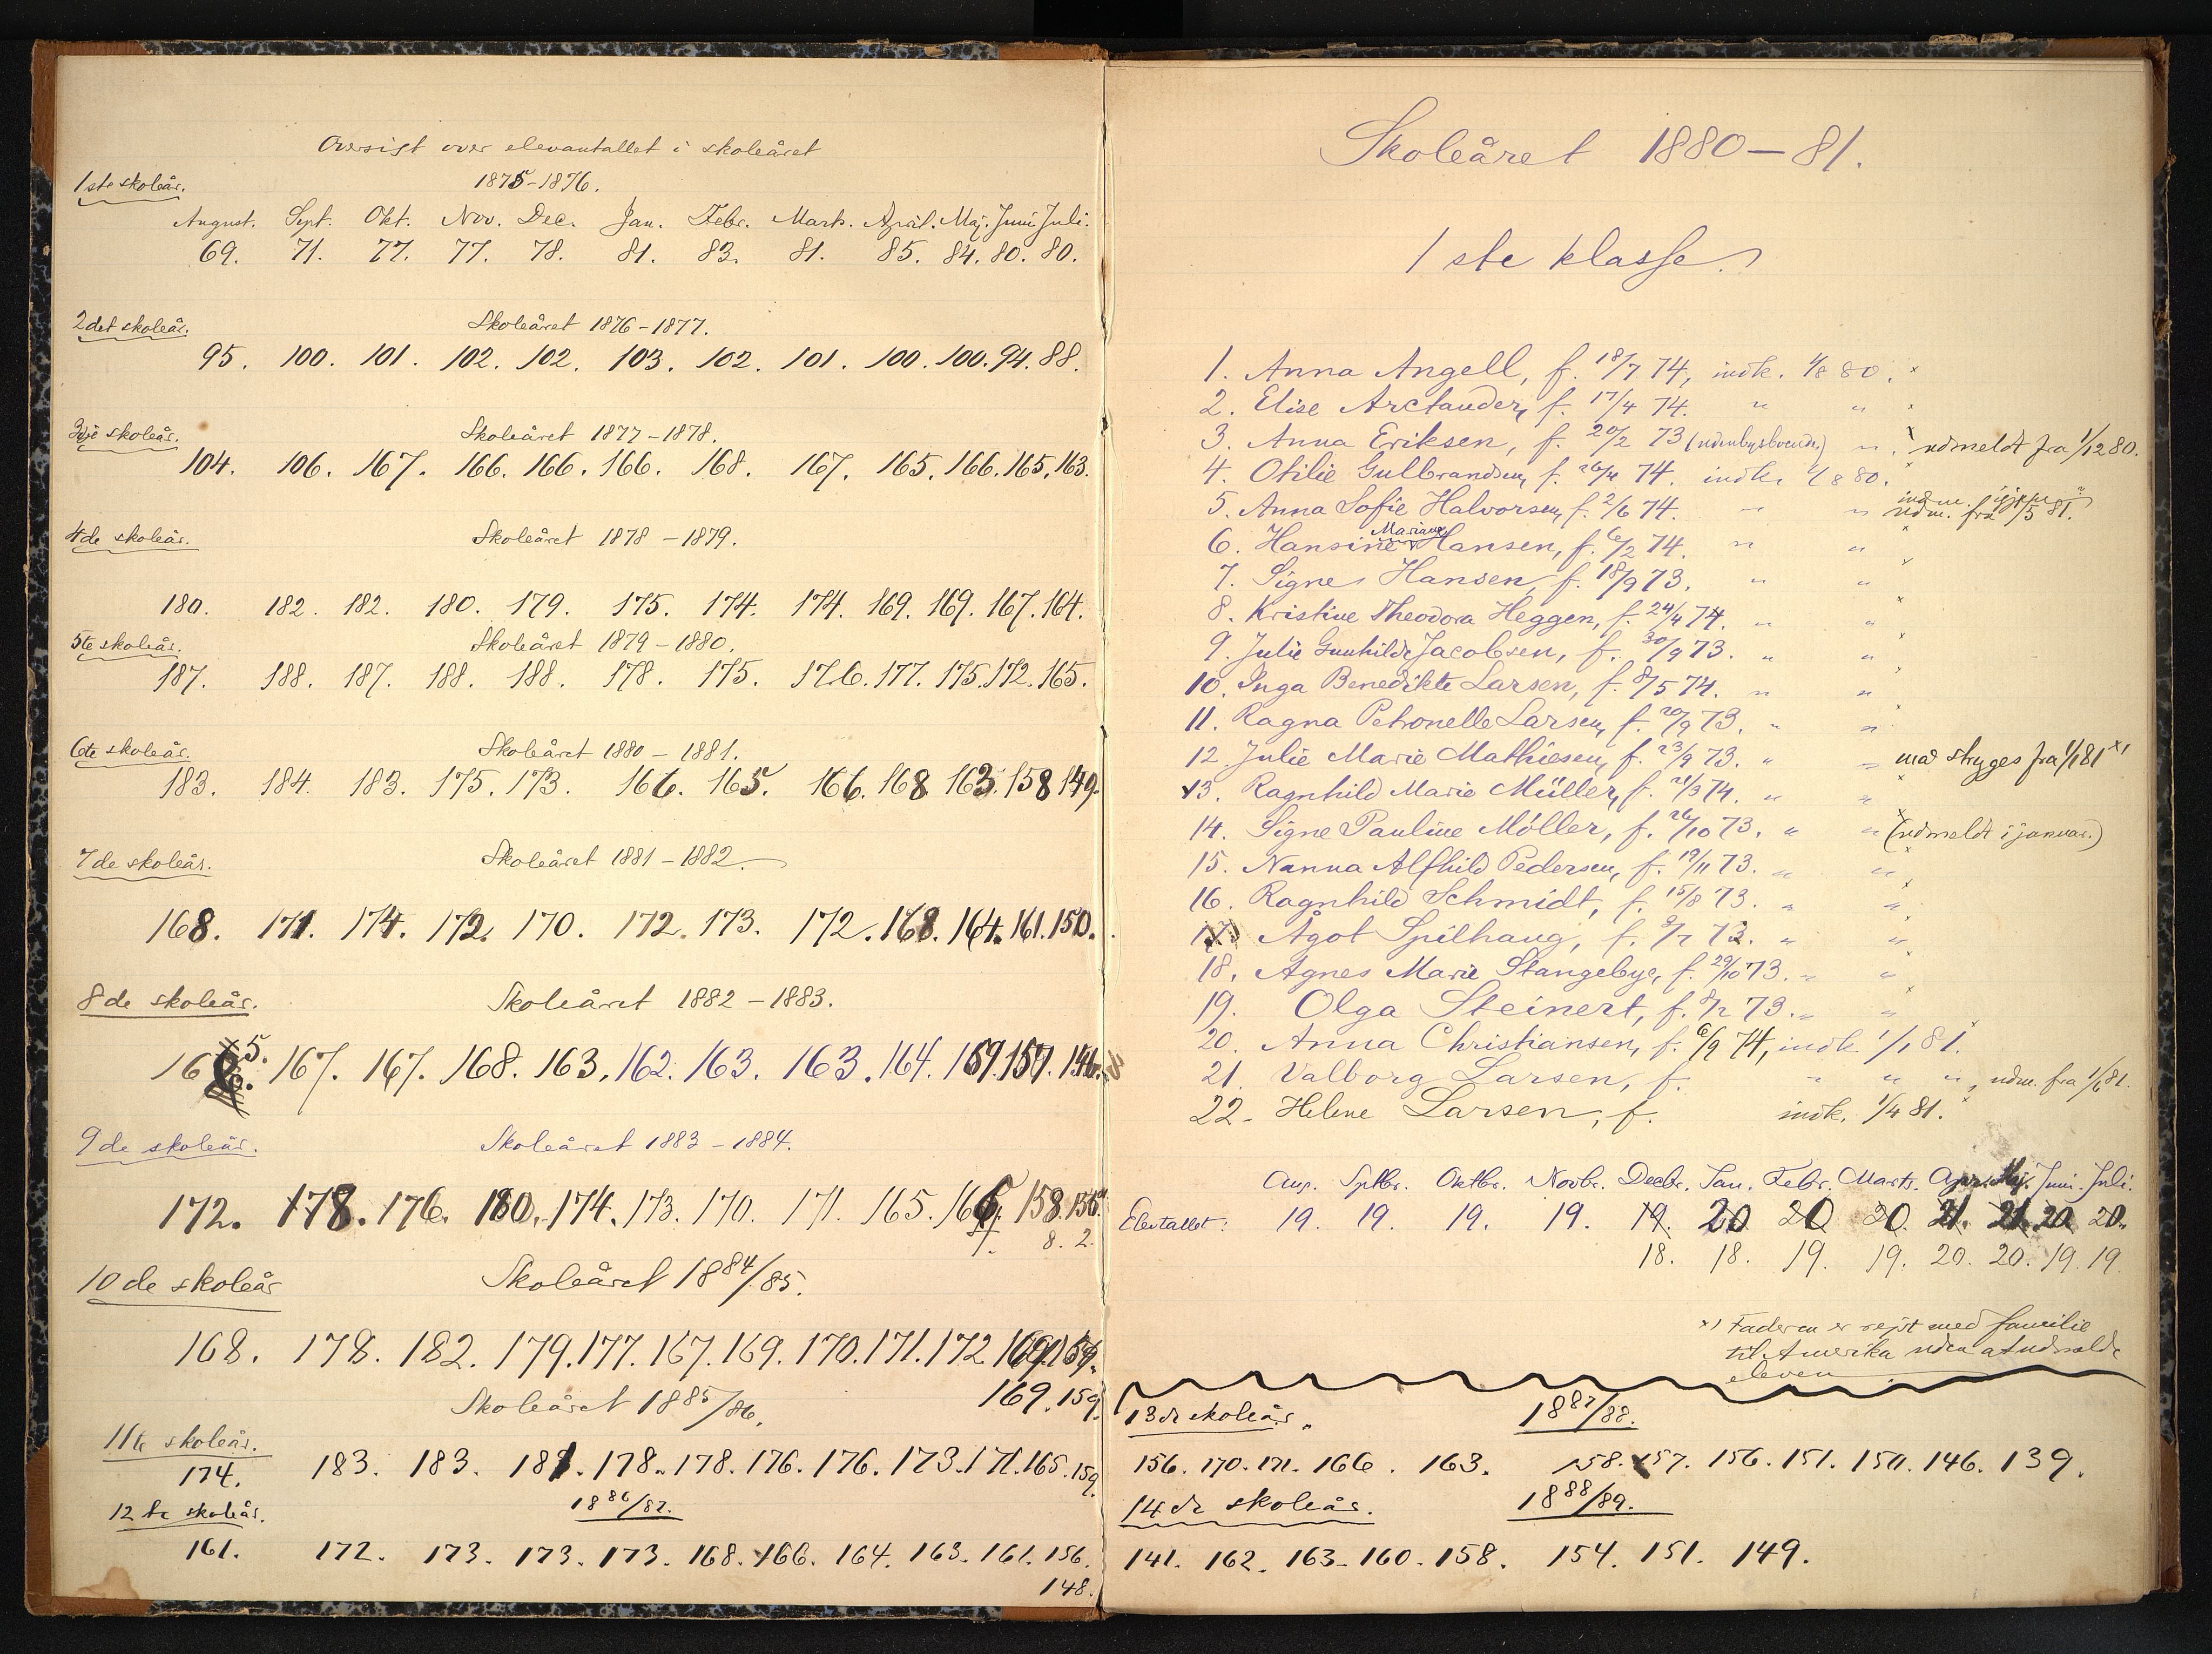 Oversigt over elevantallet i skoleåret
1ste skoleår. 1875-1876.
August. Sept. Okt. Nov. Dec. Jan. Febr. Marts. April. Maj. Juni Juli.
69. 71. 77. 77. 78. 81. 83. 81. 85. 84. 80. 80.
2det skoleår. Skoleåret 1876-1877.
95. 100. 101. 102. 102. 103. 102. 101. 100. 100. 94. 88.
3dje skoleår. Skoleåret 1877-1878.
104. 106. 167. 166. 166. 166. 168. 167. 165. 166. 165. 163.
4de skoleår. Skoleåret 1878-1879.
180. 182. 182. 180. 179. 175. 174. 174. 169. 169. 167. 164.
5te skoleår. Skoleåret 1879-1880.
187. 188. 187. 188. 188. 178. 175. 176. 177. 175. 172. 165.
6te skoleår. Skoleåret 1880-1881.
183. 184. 183. 175. 173. 166. 165. 166. 168 163. 158 149.
7de skoleår. Skoleåret 1881-1882.
168. 171. 174. 172. 170. 172. 173. 172. 168. 164. 161. 150.
8de skoleår. Skoleåret 1882-1883.
165. 167. 167. 168. 163. 162. 163. 163. 164. 159. 157. 146.
9de skoleår. Skoleåret 1883-1884.
172. 178. 176. 180. 174. 173. 170. 171. 165. 166. 158. 156.
7. 8. 2.
10de skoleår Skoleåret 1884/85.
168. 178. 182. 179. 177. 167. 169. 170. 171. 172 169. 159.
Skoleåret 1885/86. 169. 159.
11te skoleår.
174. 183. 183. 181. 178. 178. 176. 176. 173. 171. 165. 159.
12te skoleår. 1886/87.
161. 172. 173. 173. 173. 168. 166. 164. 163. 161. 156.
148.
Skoleåret 1880-81.
1ste klasse.
1. Anna Angell, f. 18/7 74, indk. 1/8 80.
2. Elise Arctander, f. 17/4 74. " "
3. Anna Eriksen, f. 20/2 73 (udenbysboende) " . udmeldt fra 1/12 80.
4. Otilie Gulbrandsen, f. 26/4 74. indk. 1/8 80.
indm. igjen
5. Anna Sofie Halvorsen, f. 2/6 74. " " udm. fra 1/5 81.
Mariane
6. Hansine Hansen, f. 6/2 74. " "
7. Signe Hansen, f. 18/9 73. " "
8. Kristine Theodora Heggen, f. 24/4 74. " "
9. Julie Gunhilde Jacobsen, f. 30/9 73. " "
10. Inga Benedikte Larsen, f. 8/5 74. " "
11. Ragna Petronelle Larsen, f. 20/9 73. " "
12. Julie Marie Mathiesen, f. 23/9 73. " " maa stryges fra 1/1 81 x)
13. Ragnhild Marie Müller, f. 21/3 74. " "
14. Signe Pauline Möller, f. 26/10 73. " " (udmeldt i januar.)
15. Nanna Alfhild Pedersen, f. 19/11 73. " "
16. Ragnhild Schmidt, f. 15/8 73. " "
17. Ågot Spilhaug, f. 9/7 73. " "
18. Agnes Marie Stangebye, f. 29/10 73. " "
19. Olga Steinert, f. 8/12 73. " "
20. Anna Christiansen, f. 6/9 74, indk. 1/1 81.
21. Valborg Larsen, f. " " ", udm. fra 1/6 81.
22. Helene Larsen, f. indk. 1/4 81.
Aug. Septbr. Oktbr. Novbr. Decbr. Jan. Febr. Marts. Apr. Maj. Juni. Juli.
Elevtallet: 19. 19. 19. 19. 19. 20 20 20. 21. 21. 20 20.
18. 18. 19. 19. 20. 20. 19. 19.
x) Faderen er rejst med familie
til Amerika uden at udmelde
eleven
13de skoleår. 1887/88.
156. 170. 171. 166. 163. 158. 157. 156. 151. 150. 146. 139.
14de skoleår. 1888/89.
141. 162. 163. 160. 158. 154. 151. 149.